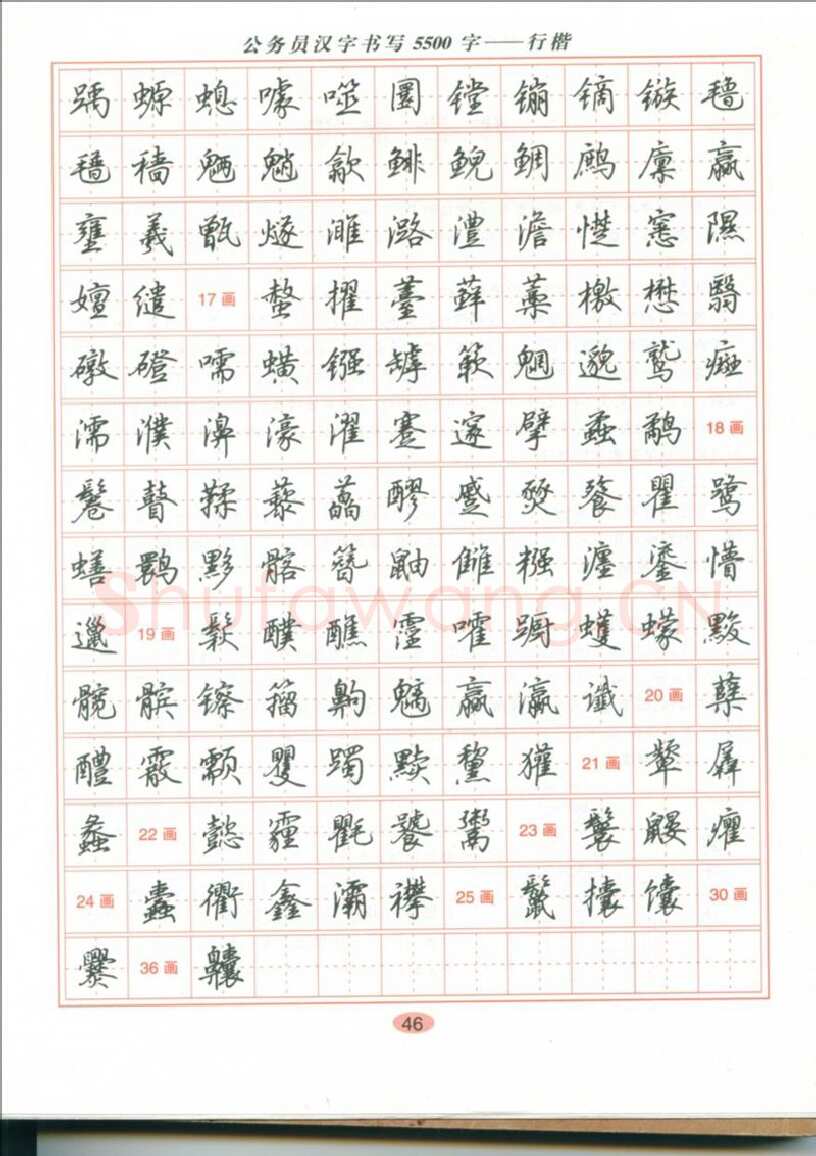 公务员汉字书写5500字——行楷
踽 螈 螅 噱 噬 圜 镗 镚 镝 镞 氇
氆 穑 魉 魈 歙 鲱 鲵 鲷 鹧 廪 嬴
壅 羲 甑 燧 濉 潞 澧 澹 憷 窸 隰
嬗 缱 17画 螯 擢 薹 藓 藁 檄 懋 翳
磴 嚅 蟥 镪 罅 簌 魍 邈 鹫 癍
濡 濮 濞 濠 濯 蹇 邃 擘 蟊 鹬 18画
鬈 瞽 鞣 藜 藠 醪 蹙 燹 餮 瞿 鹭
蟮 鹮 黟 髂 簪 鼬 雠 糨 瀍 鎏 懵
邋 19画 鬏 醭 醮 霪 嚯 蹰 蠖 蠓 黢
髋 髌 镲 籀 齁 魑 嬴 瀛 谶 20画 蘖
醴 霰 颥 矍 躅 黩 黧 獾 21画 颦 羼
蠡 22画 懿 霾 氍 饕 鬻 23画 鬟 鼹 癯
24画 蠹 衢 鑫 灞 襻 25画 鬣 攮 馕 30画
爨 36画 齉
Shufawang.CN
46